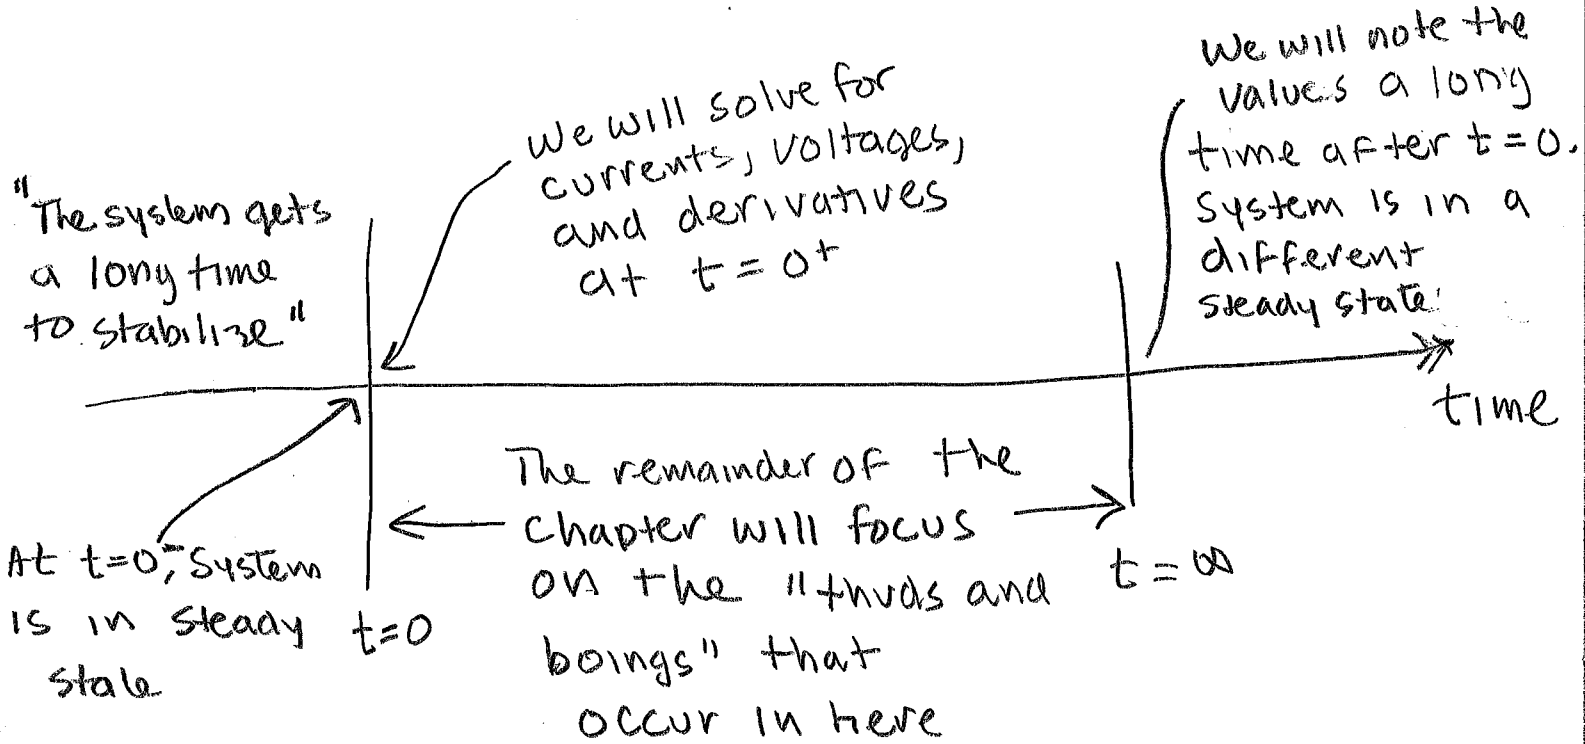 "The system gets
a long time
to stabilize"
We will solve for
currents, voltages,
and derivatives
at t=0+
We will note the
values a long
time after t=0.
System is in a
different
steady state.
time
At t=0-, System
is in steady
state
t=0
The remainder of the
Chapter will focus
on the "thuds and
boings" that
occur in here
t=∞